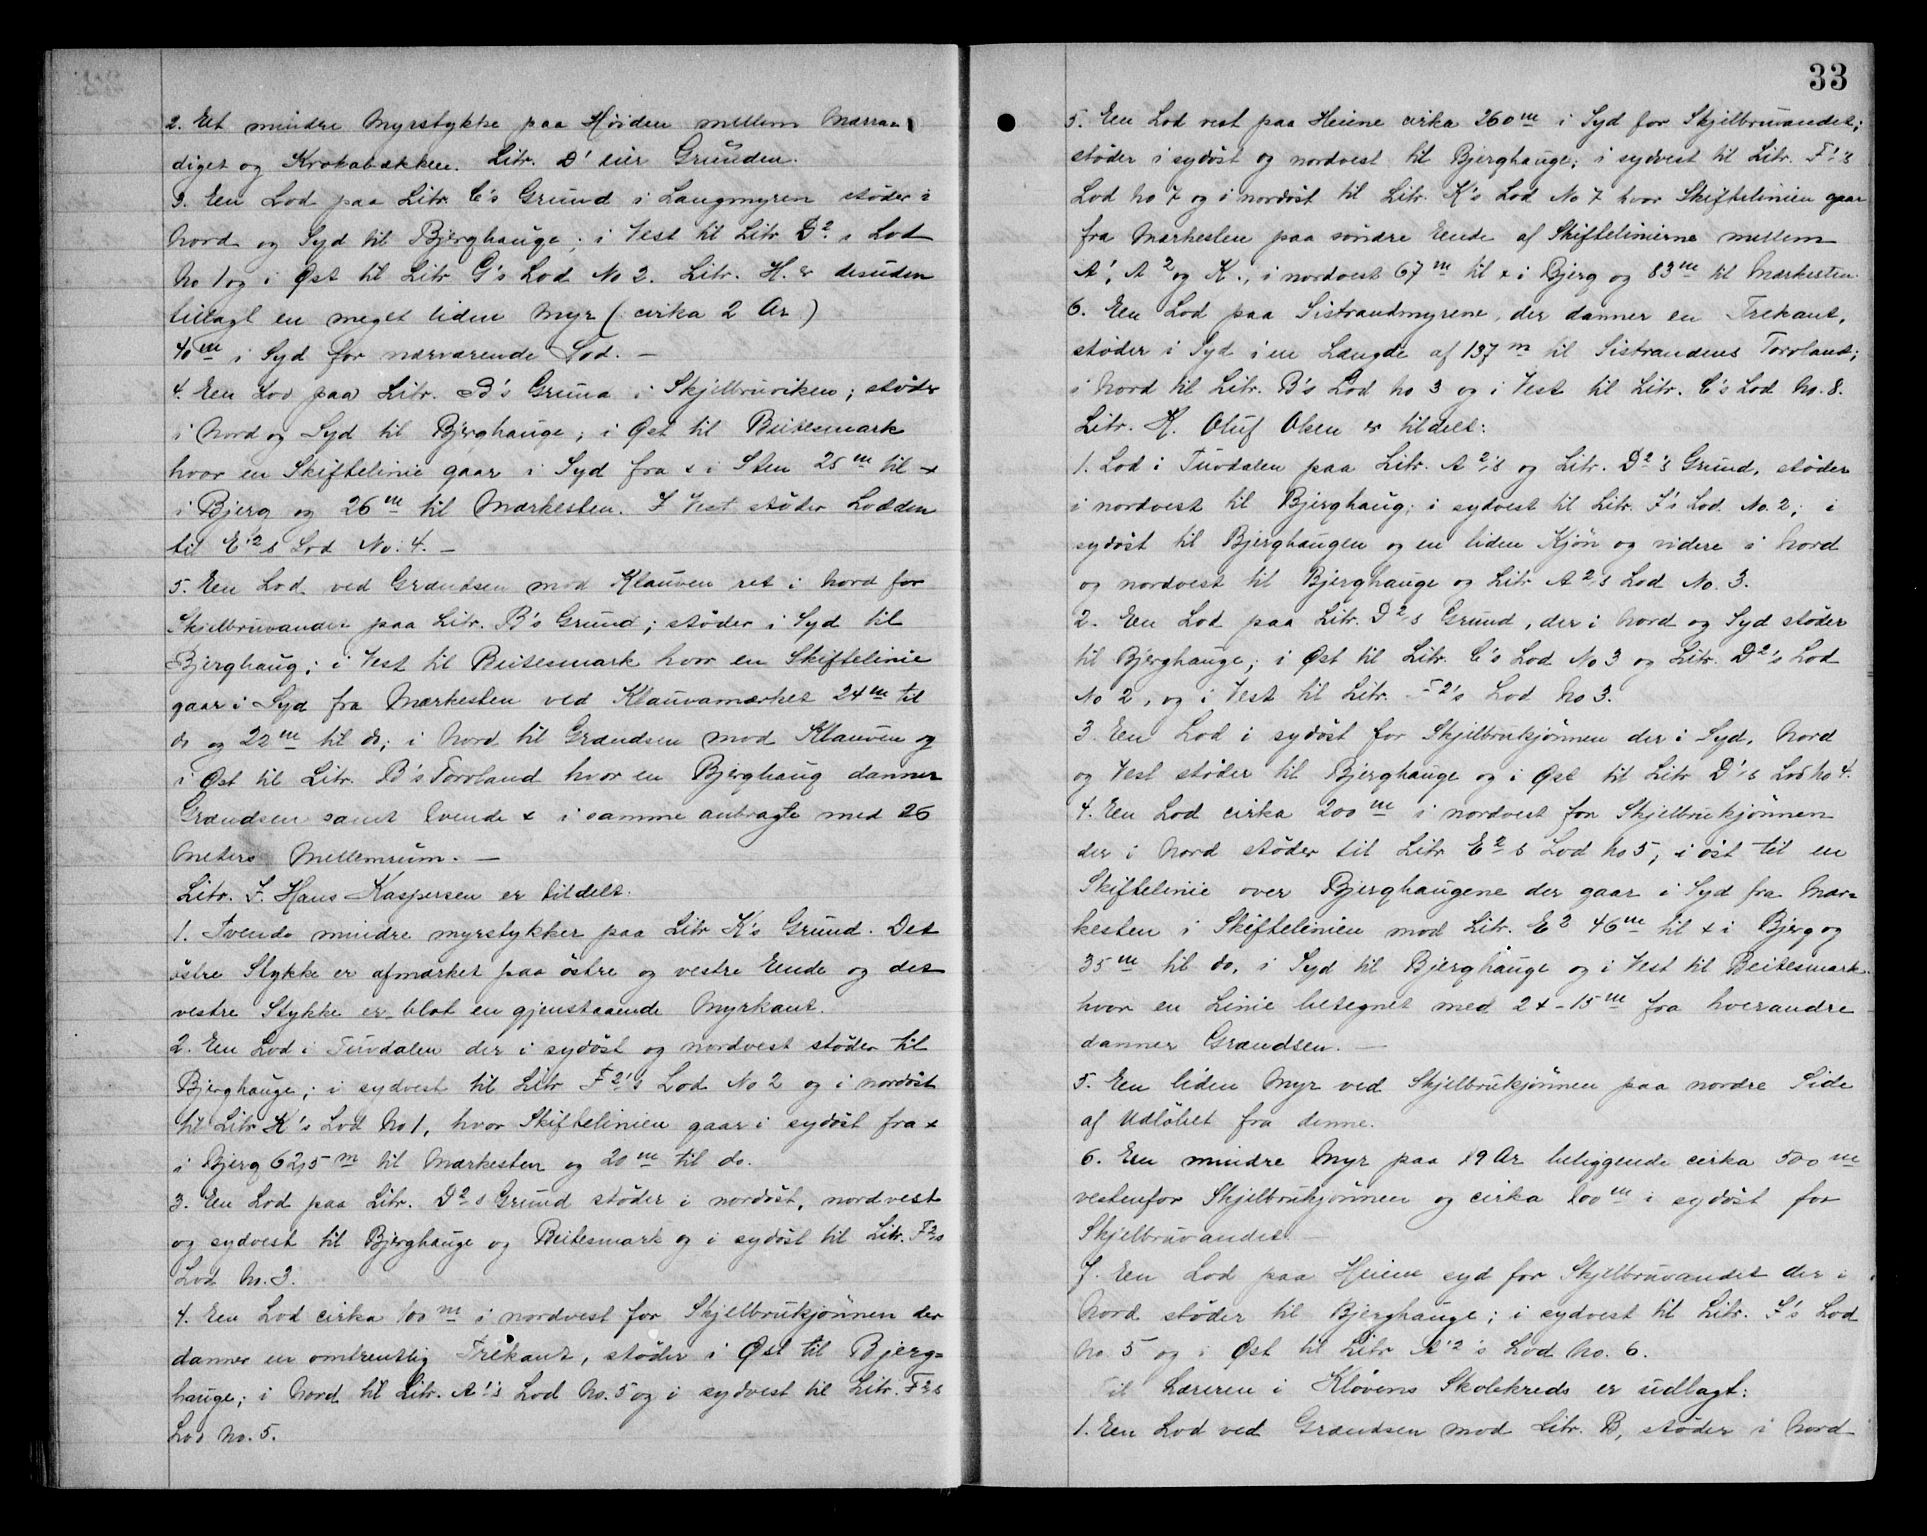 2. Et mindre Myrstykke paa Høiden mellem Marraa
diget og Krokabækken. Litr. D¹ eier Grunden.
3. Een Lod paa Litr C's Grund i Langmyren støder i
Nord og Syd til Bjerghauge; i Vest til Litr D²s Lod
No 1 og i Øst til Litr G's Lod No 2. Litr. H. er desuden
tillagt en meget liden Myr (: cirka 2 Ar )
40 m i Syd for nærværende Lod. —
4. Een Lod paa Litr. B's Grund i Skjelbruviken; støder
i Nord og Syd til Bjerghauge; i Øst til Beitesmark
hvor en Skiftelinie gaar i Syd fra x i Sten 25 m til x
i Bjerg og 26 m til Mærkesten. I Vest støder Lodden
til E²s Lod No. 4. —
5. Een Lod ved Grændsen mod Klauven ret i Nord for
Skjelbruvandet paa Litr. B's Grund; støder i Syd til
Bjerghaug; i Vest til Beitesmark hvor en Skiftelinie
gaar i Syd fra Mærkesten ved Klauvamærket 24 m til
do og 22 m til do; i Nord til Grændsen mod Klauven og
i Øst til Litr. B's Torvland hvor en Bjerghaug danner
Grændsen samt tvende x i samme anbragte med 26
Meters Mellemrum. —
Litr. F. Hans Kaspersen er tildelt.
1. Tvende mindre myrstykker paa Litr K's Grund. Det
østre Stykke er afmærket paa østre og vestre Ende og det
vestre Stykke er blot en gjenstaaende Myrkant.
2. Een Lod i Tuvdalen der i sydøst og nordvest støder til
Bjerghauge; i sydvest til Litr F²'s Lod No 2 og i nordøst
til Litr K's Lod No 1, hvor Skiftelinien gaar i sydøst fra x
i Bjerg 62,5 m til Mærkesten og 20 m til do.
3. Een Lod paa Litr. D²s Grund støder i nordøst, nordvest
og sydvest til Bjerghauge og Beitesmark og i sydøst til Litr. F²s
Lod No. 3.
4. Een Lod cirka 100 m i nordvest for Skjelbrukjønnen der
danner en omtrentlig Trekant, støder i Øst til Bjerg-
hauge; i Nord til Litr. A¹'s Lod No. 5 og i sydvest til Litr. F²s
Lod No. 5.
33
5. Een Lod vest paa Heiene cirka 260 m i Syd for Skjelbruvandet;
støder i sydøst og nordvest til Bjerghauge; i sydvest til Litr. F¹'s
Lod No 7 og i nordøst til Litr. K's Lod No 7 hvor Skiftelinien gaar
fra Mærkesten paa søndre Eende af Skiftelinierne mellem
A¹, A² og K., i nordvest 67 m til x i Bjerg og 83 m til Mærkesten.
6. Een Lod paa Sistrandmyrene, der danner en Trekant,
støder i Syd i en Længde af 137 m til Sistrandens Torvland;
i Nord til Litr. B's Lod No 3 og i Vest til Litr. C's Lod No. 8.
Litr. K. Oluf Olsen er tildelt:
1. Lod i Tuvdalen paa Litr. A²'s og Litr. D²'s Grund, støder
i nordvest til Bjerghaug; i sydvest til Litr. F's Lod No. 2; i
sydøst til Bjerghaugen og en liden Kjøn og videre i Nord
og nordvest til Bjerghauge og Litr A²s Lod No. 3.
2. Een Lod paa Litr. D²'s Grund, der i Nord og Syd støder
til Bjerghauge; i Øst til Litr. C's Lod No 3 og Litr. D²'s Lod
No 2, og i Vest til Litr. F²'s Lod No 3.
3. Een Lod i sydøst for Skjelbrukjønnen der i Syd, Nord
og Vest støder til Bjerghauge og i Øst til Litr D¹'s Lod No 4.
4. Een Lod cirka 200 m i nordvest for Skjelbrukjønnen
der i Nord støder til Litr E²s Lod No 5; i øst til en
Skiftelinie over Bjerghaugene der gaar i Syd fra Mær-
kesten i Skiftelinien mod Litr. E² 46 m til x i Bjerg og
35 m til do, i Syd til Bjerghauge og i Vest til Beitesmark
hvor en Linie betegnet med 2 x - 15 m fra hverandre
danner Grændsen. —
5. Een liden Myr ved Skjelbrukjønnen paa nordre Side
af Udløbet fra denne.
6. Een mindre Myr paa 19 Ar beliggende cirka 500 m
vestenfor Skjelbrukjønnen og cirka 100 m i sydøst for
Skjelbruvandet —
7. Een Lod paa Heiene syd for Skjelbruvandet der i
Nord støder til Bjerghauge; i sydvest til Litr. F's Lod
No. 5 og i Øst til Litr A²'s Lod No. 6.
Til Læreren i Kløvens Skolekreds er udlagt:
1. Een Lod ved Grændsen mod Litr. B, støder i Nord